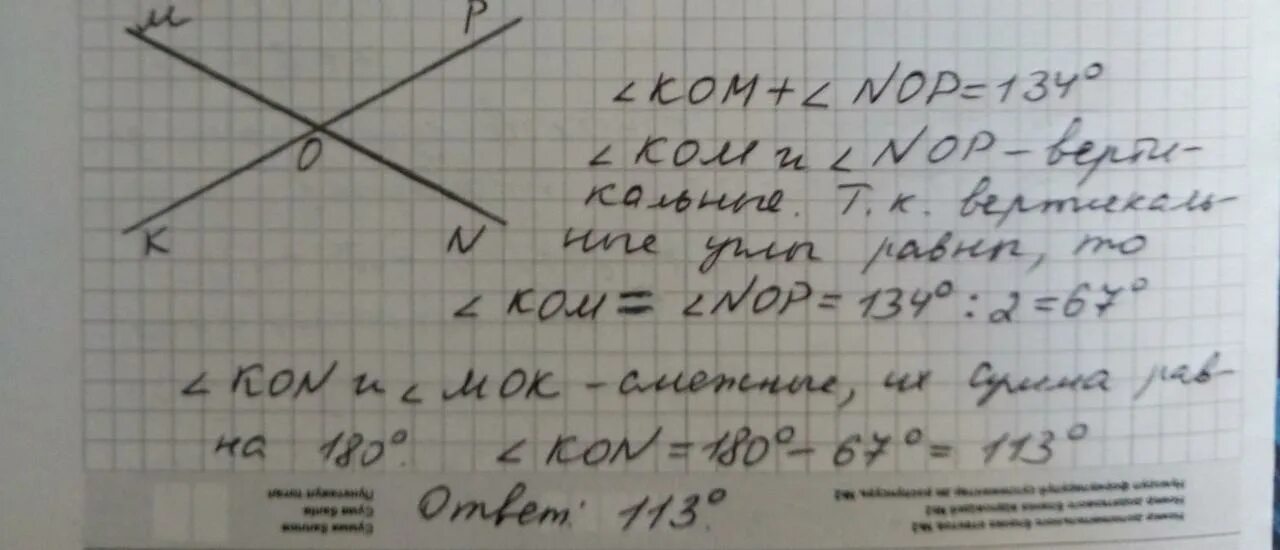 M P
O
K N
∠KOM + ∠NOP = 134°
∠KOM и ∠NOP – верти-
кальные. Т.к. вертикаль-
ные углы равны, то
∠KOM = ∠NOP = 134° : 2 = 67°
∠KON и ∠MOK – смежные, их сумма рав-
на 180°. ∠KON = 180° – 67° = 113°
Ответ: 113°.